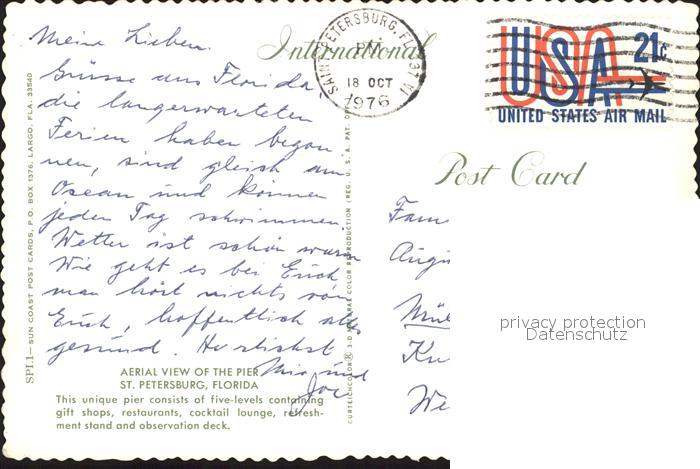 Meine Lieben.
Grüsse aus Florida
die langerwarteten
Ferien haben begon
nen, sind gleich am
Ocean und können
jeden Tag schwimmen
Wetter ist schön warm
Wie geht es bei Euch
man hört nichts von
Euch, hoffentlich alles
gesund. Herzlichst
und
Joe
International
SAINT PETERSBURG, FL
PM
18 OCT
1976
USA 21c
UNITED STATES AIR MAIL
Post Card
Fam
Mül
We
privacy protection
Datenschutz
AERIAL VIEW OF THE PIER
ST. PETERSBURG, FLORIDA
This unique pier consists of five-levels containing
gift shops, restaurants, cocktail lounge, refresh-
ment stand and observation deck.
SPI.1—SUN COAST POST CARDS, P.O. BOX 1376, LARGO, FLA. 33540
CURTEICHCOLOR® 3-D NATURAL COLOR REPRODUCTION (REG. U.S.A. PAT. O